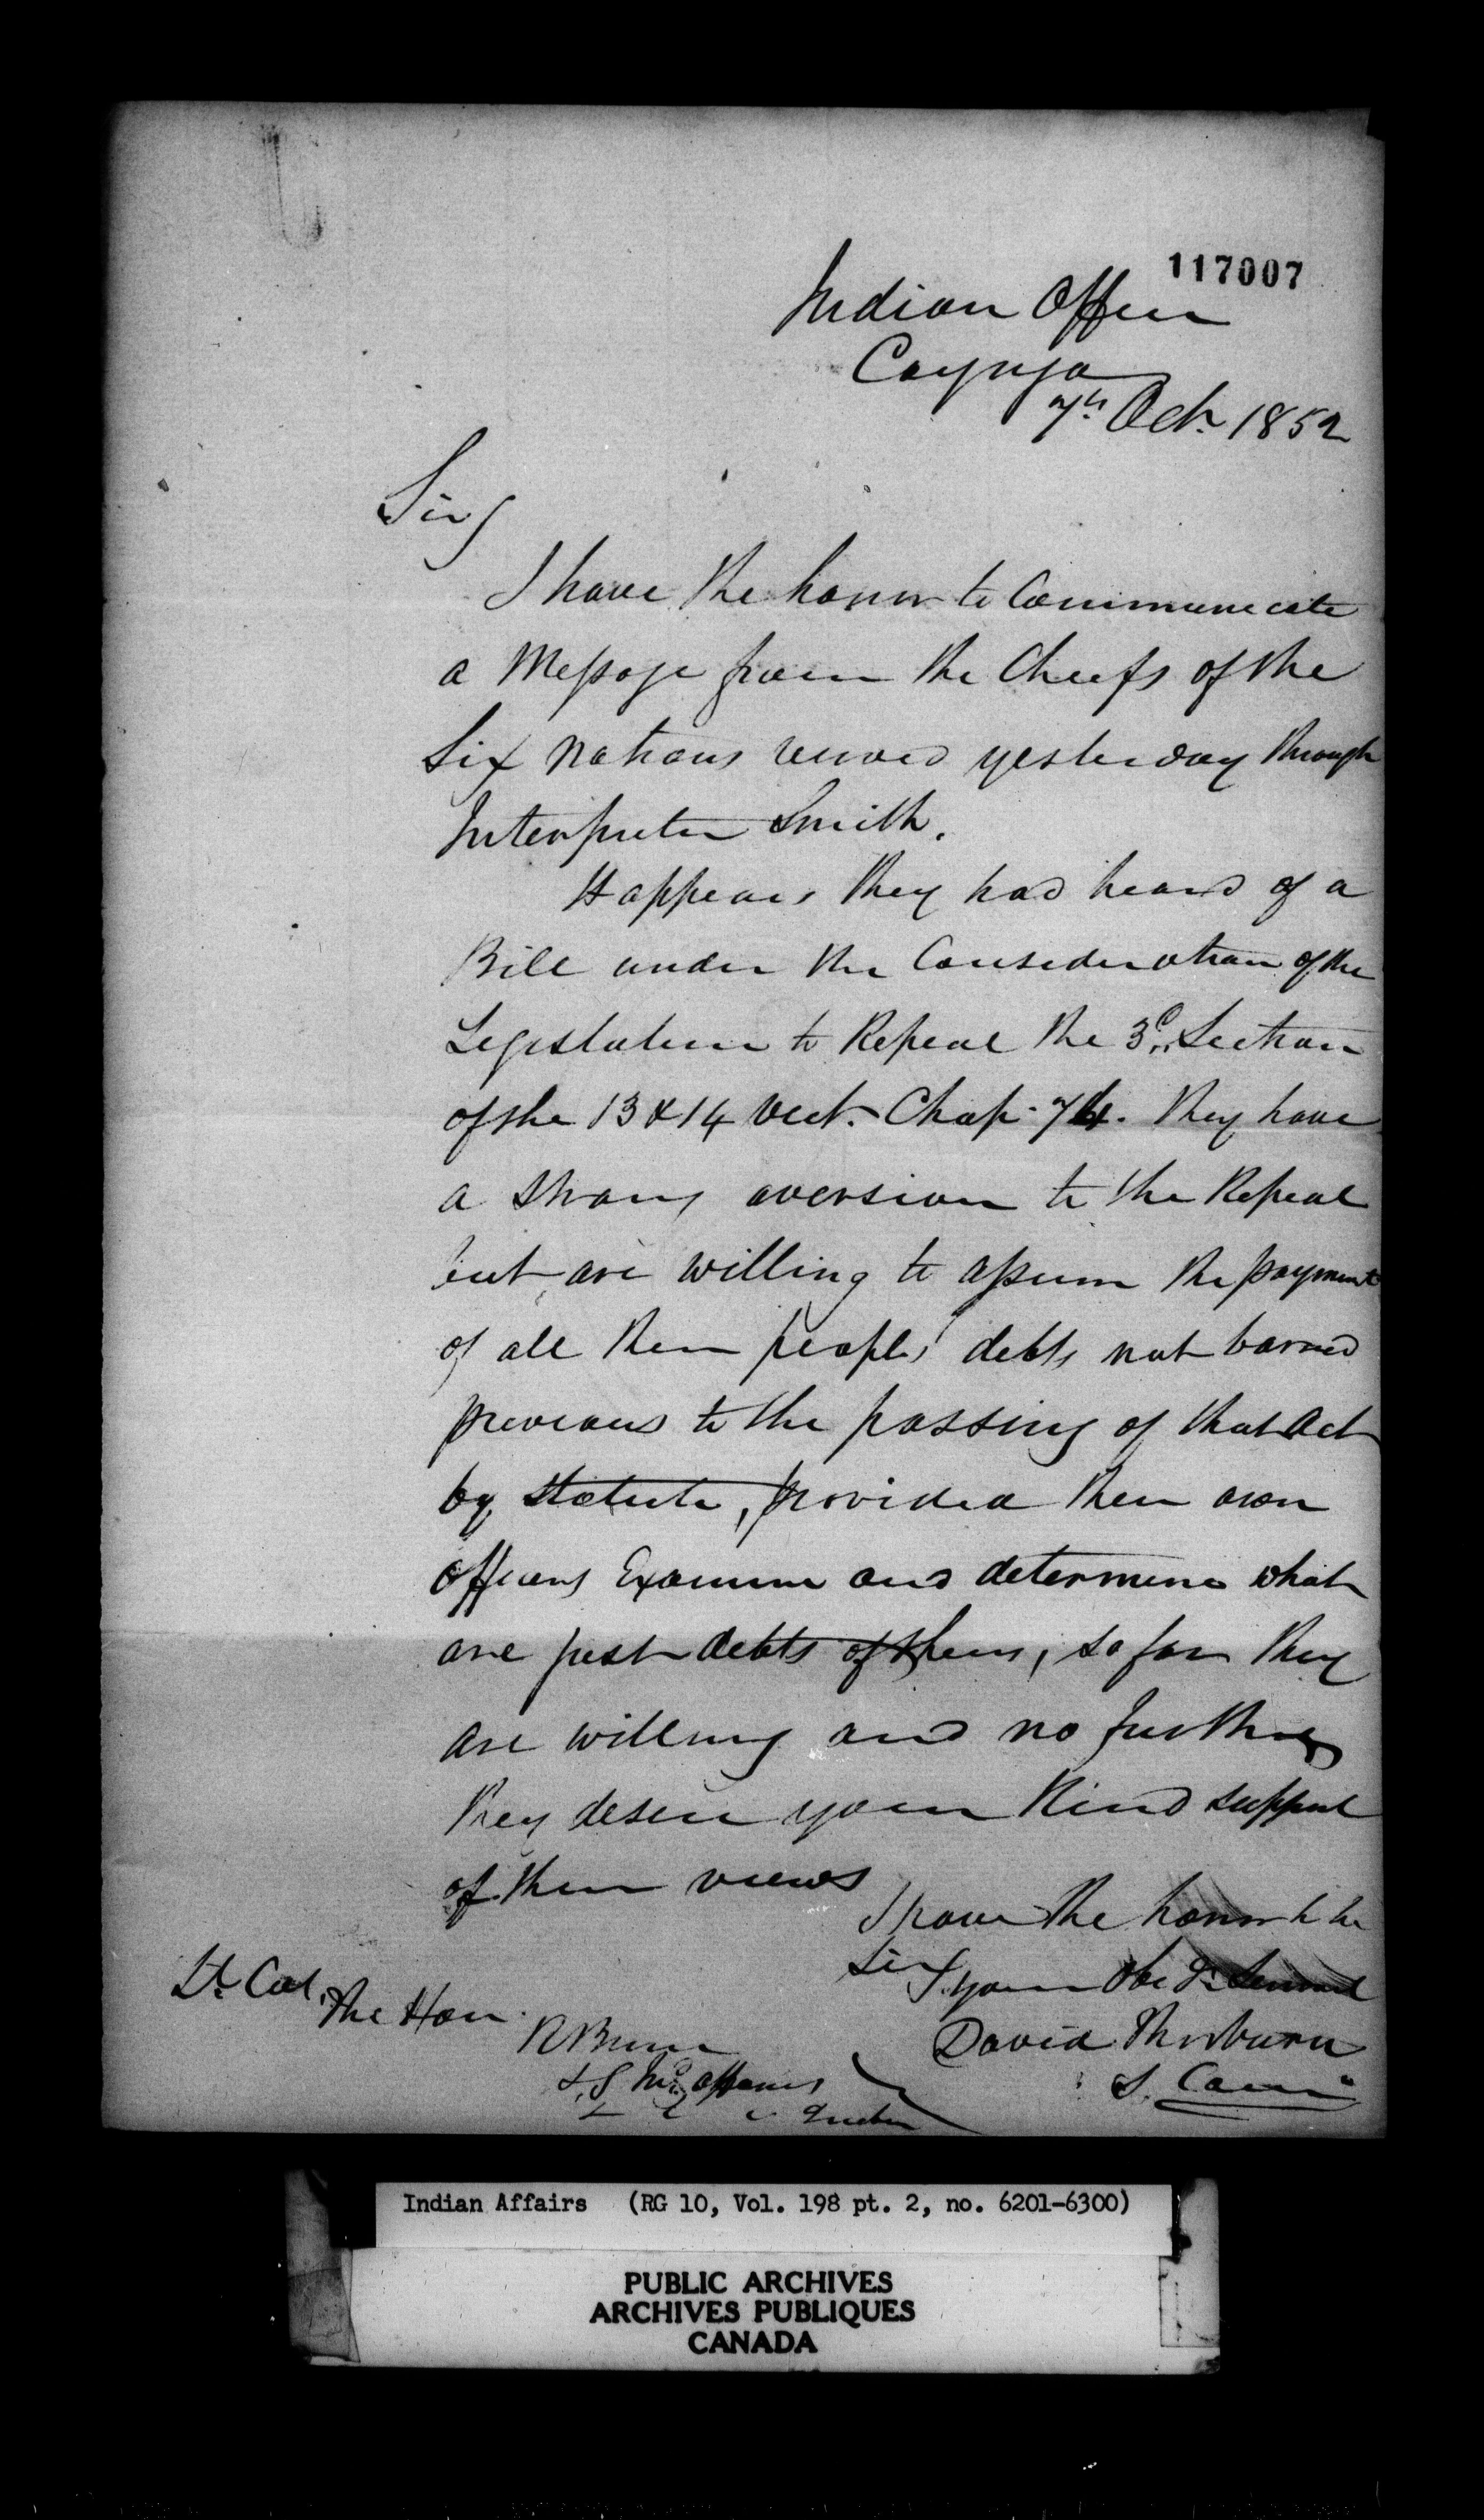 117007
Indian Office
Cayuga
7th Oct. 1852
Sir
I have the honor to Communicate
a Message from the Chiefs of the
Six Nations received yesterday through
Interpreter Smith.
It appears they had heard of a
Bill under the Consideration of the
Legislature to Repeal the 3d. Section
of the 13 & 14 Vict. Chap. 74. They have
a strong aversion to the Repeal
but are willing to assume the payment
of all their peoples' debts not barred
previous to the passing of that Act
by Statute, provided their own
officers Examine and determine what
are just debts of them, so far they
are willing and no further
they desire your Kind support
of their views
I have the honor to be
Sir
your Obedt. Servant
David Thorburn
S. Comr.
Lt. Col. The Hon.
R Bruce
S.G. Ind. Affairs
Quebec
Indian Affairs (RG 10, Vol. 198 pt. 2, no. 6201-6300)
PUBLIC ARCHIVES
ARCHIVES PUBLIQUES
CANADA